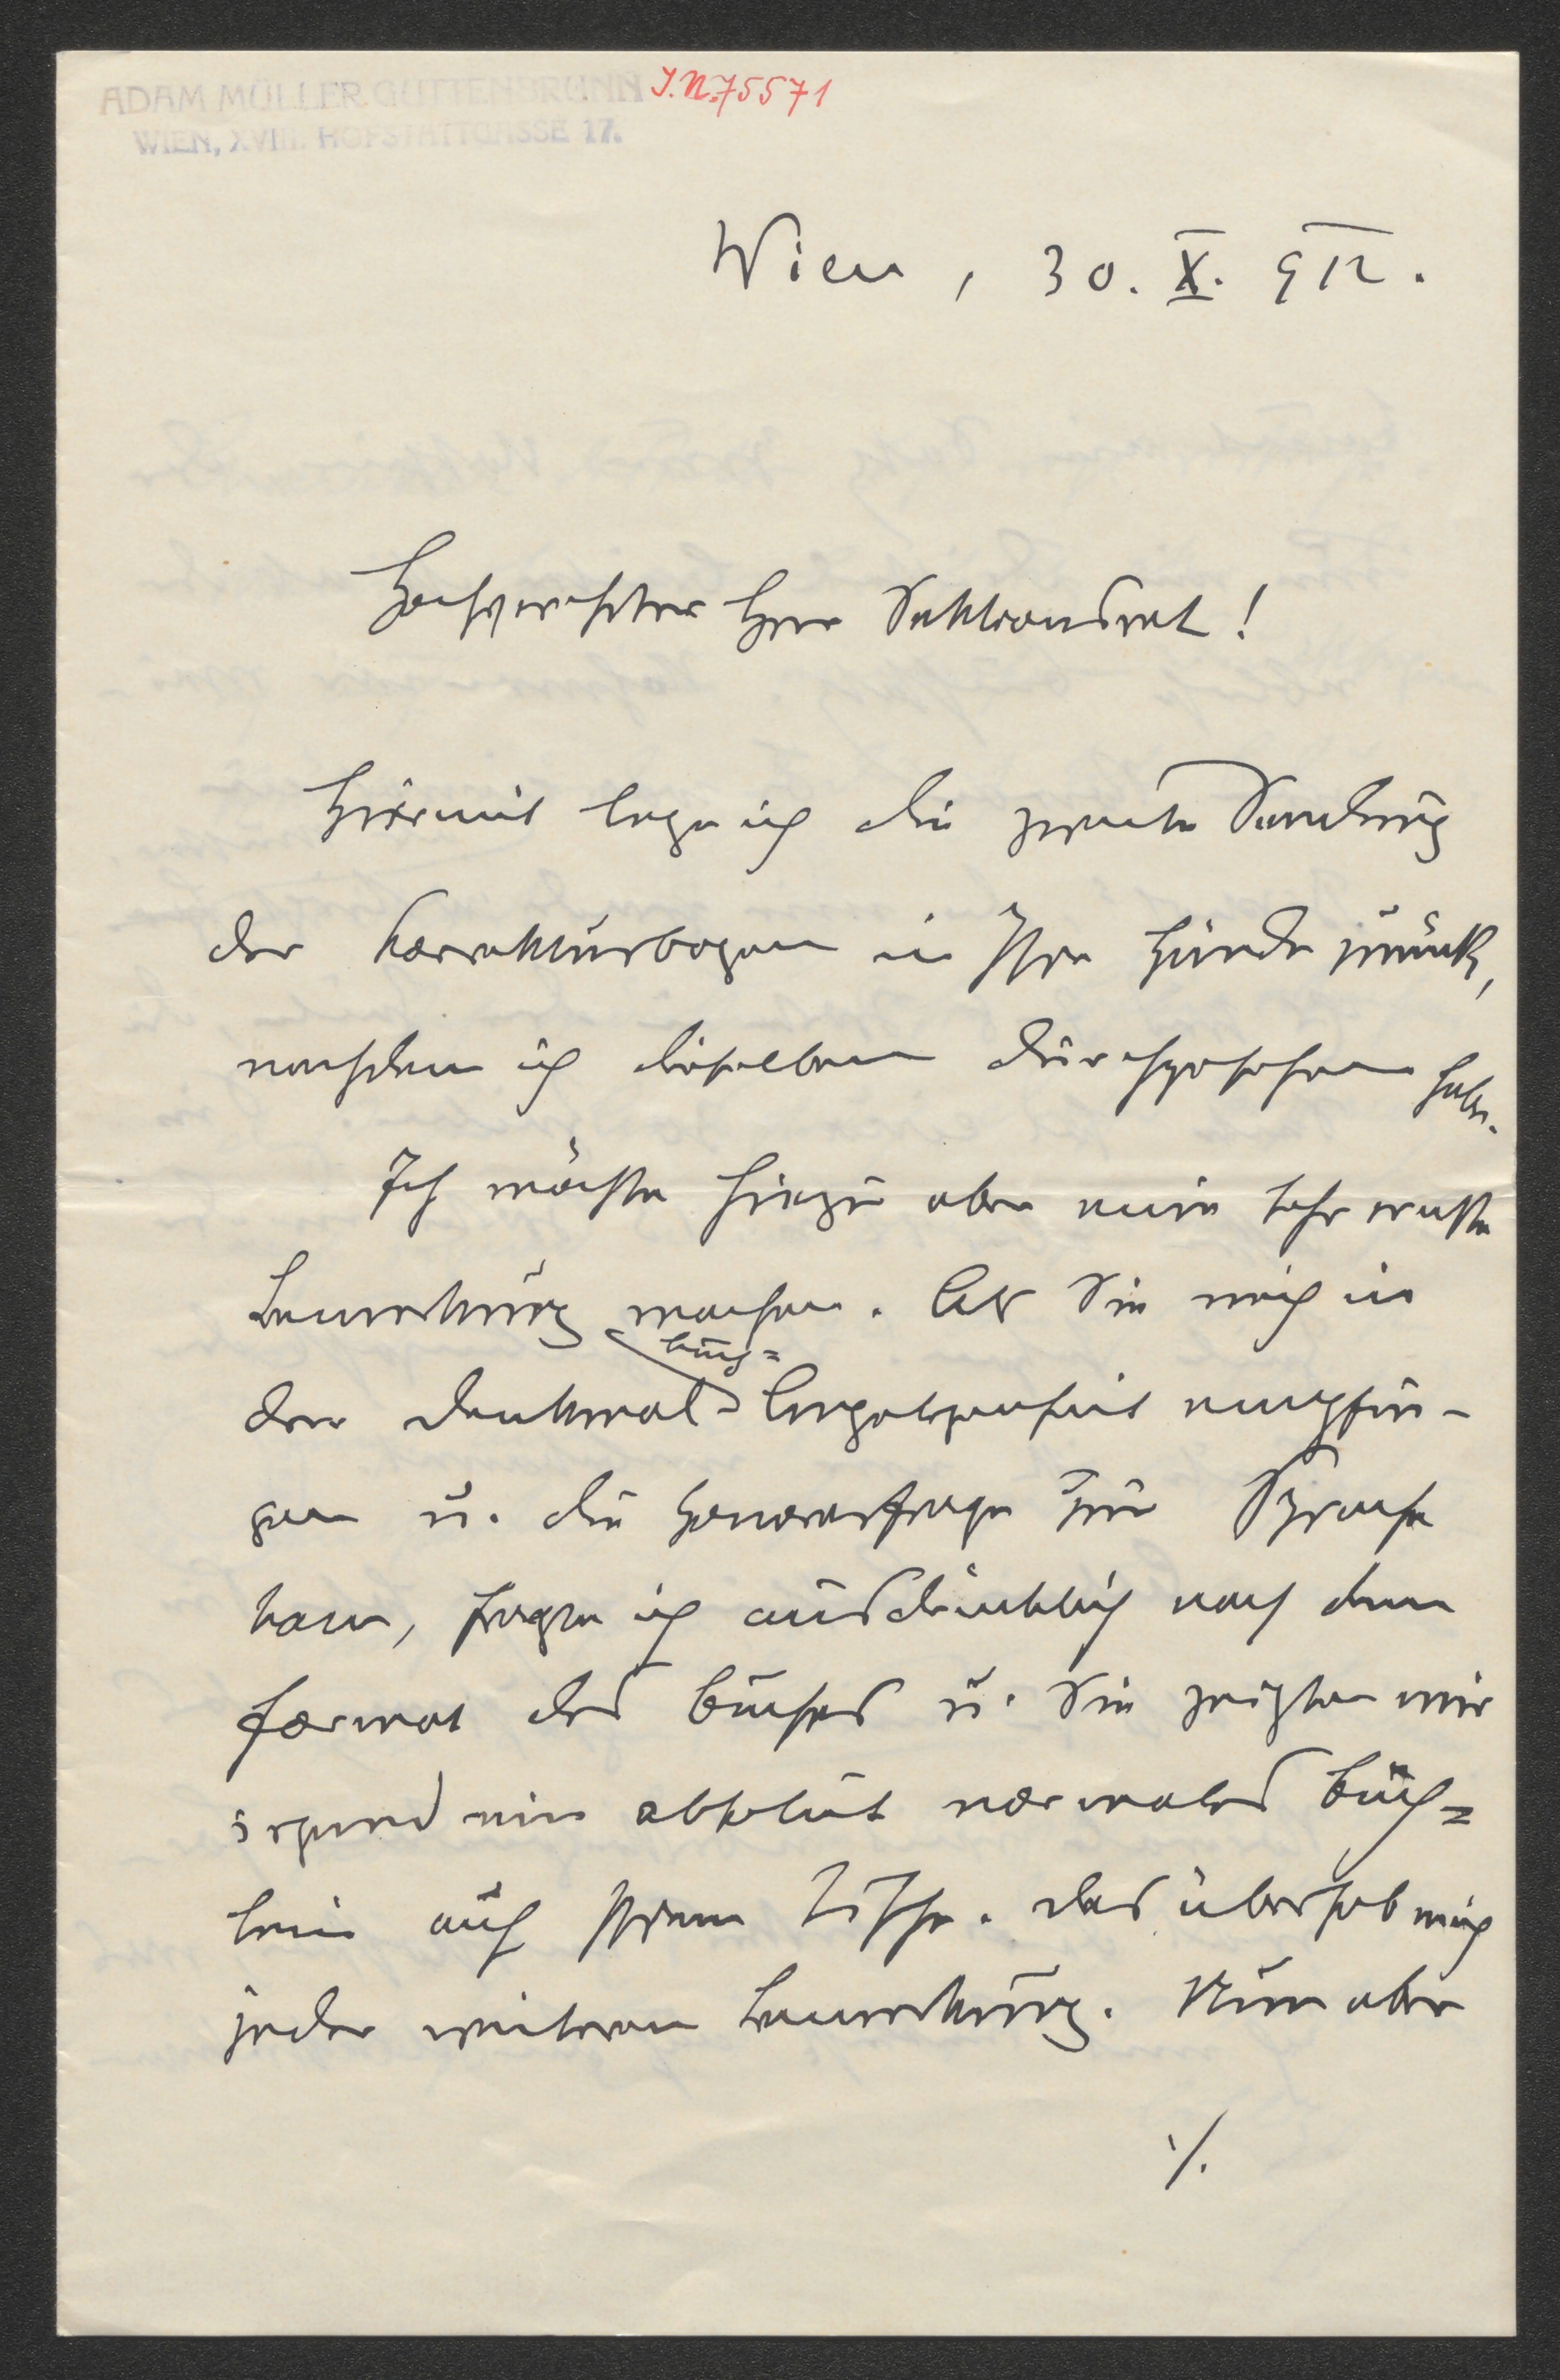 ADAM MÜLLER-GUTTENBRUNN
WIEN, XVIII. HOFSTATTGASSE 17.
J.N. 75571
Wien, 30. X. 912.
Hochgeehrter Herr Sektionsrat!
Hiermit lege ich die zweite Sendung
der Korrekturbogen in Ihre Hände zurück,
nachdem ich dieselben durchgesehen habe.
Ich möchte hiezu aber eine sehr ernste
Bemerkung machen. Als Sie mich in
buch=
der Denkmal-Angelegenheit empfin-
gen u. die Honorarfrage zur Sprache
kam, fragte ich ausdrücklich nach dem
Format des Buches u. Sie zeigten mir
irgend ein absolut normales Büch=
lein auf Ihrem Tische. Das überhob mich
jeder weiteren Bemerkung. Nun aber
./.